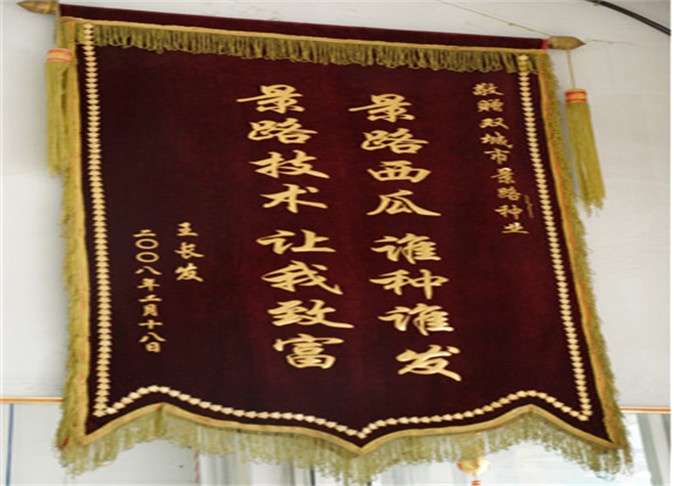 敬赠双城市景路种业
景路西瓜 谁种谁发
景路技术 让我致富
王长发
二〇〇八年二月十八日